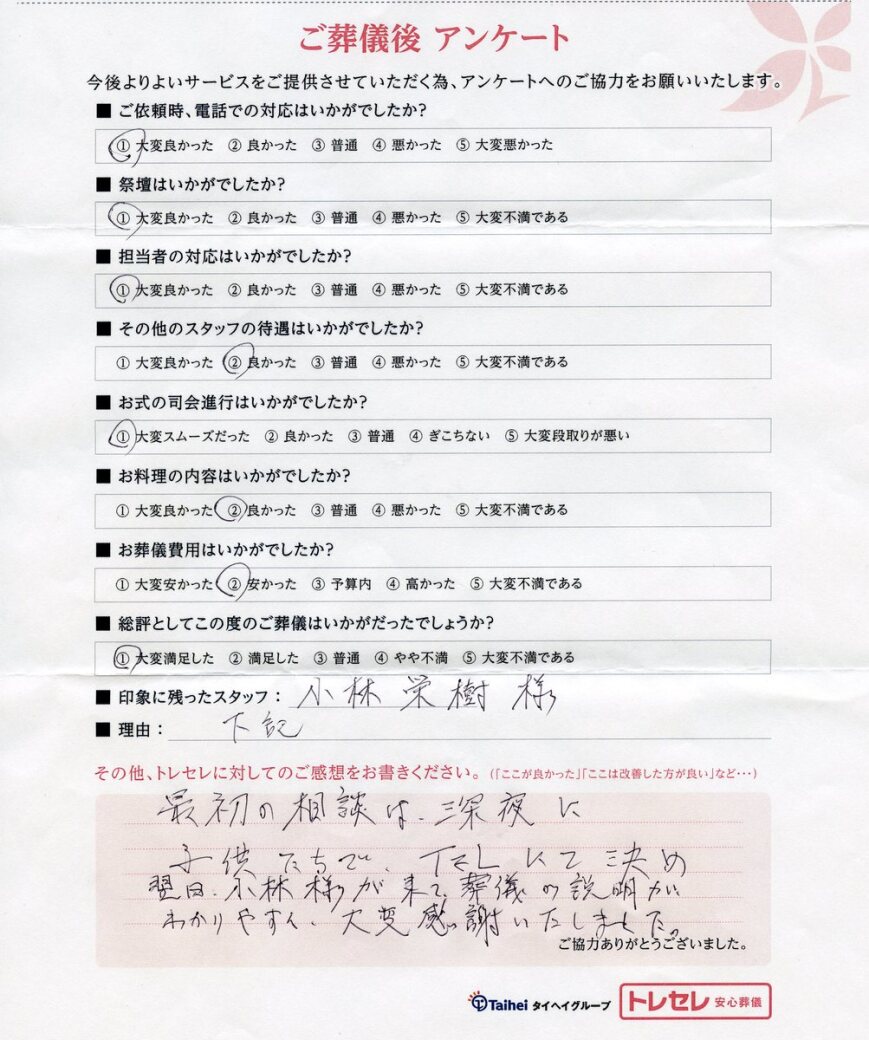 ご葬儀後 アンケート
今後よりよいサービスをご提供させていただく為、アンケートへのご協力をお願いいたします。
■ ご依頼時、電話での対応はいかがでしたか?
① 大変良かった ② 良かった ③ 普通 ④ 悪かった ⑤ 大変悪かった
■ 祭壇はいかがでしたか?
① 大変良かった ② 良かった ③ 普通 ④ 悪かった ⑤ 大変不満である
■ 担当者の対応はいかがでしたか?
① 大変良かった ② 良かった ③ 普通 ④ 悪かった ⑤ 大変不満である
■ その他のスタッフの待遇はいかがでしたか?
① 大変良かった ② 良かった ③ 普通 ④ 悪かった ⑤ 大変不満である
■ お式の司会進行はいかがでしたか?
① 大変スムーズだった ② 良かった ③ 普通 ④ ぎこちない ⑤ 大変段取りが悪い
■ お料理の内容はいかがでしたか?
① 大変良かった ② 良かった ③ 普通 ④ 悪かった ⑤ 大変不満である
■ お葬儀費用はいかがでしたか?
① 大変安かった ② 安かった ③ 予算内 ④ 高かった ⑤ 大変不満である
■ 総評としてこの度のご葬儀はいかがだったでしょうか?
① 大変満足した ② 満足した ③ 普通 ④ やや不満 ⑤ 大変不満である
■ 印象に残ったスタッフ: 小林 栄樹 様
■ 理由: 下記
その他、トレセレに対してのご感想をお書きください。(「ここが良かった」「ここは改善した方が良い」など・・・)
最初の相談は、深夜に
子供たちで、TELにて決め
翌日、小林様が来て、葬儀の説明が、
わかりやすく、大変感謝いたしました。
ご協力ありがとうございました。
Taihei タイヘイグループ トレセレ 安心葬儀